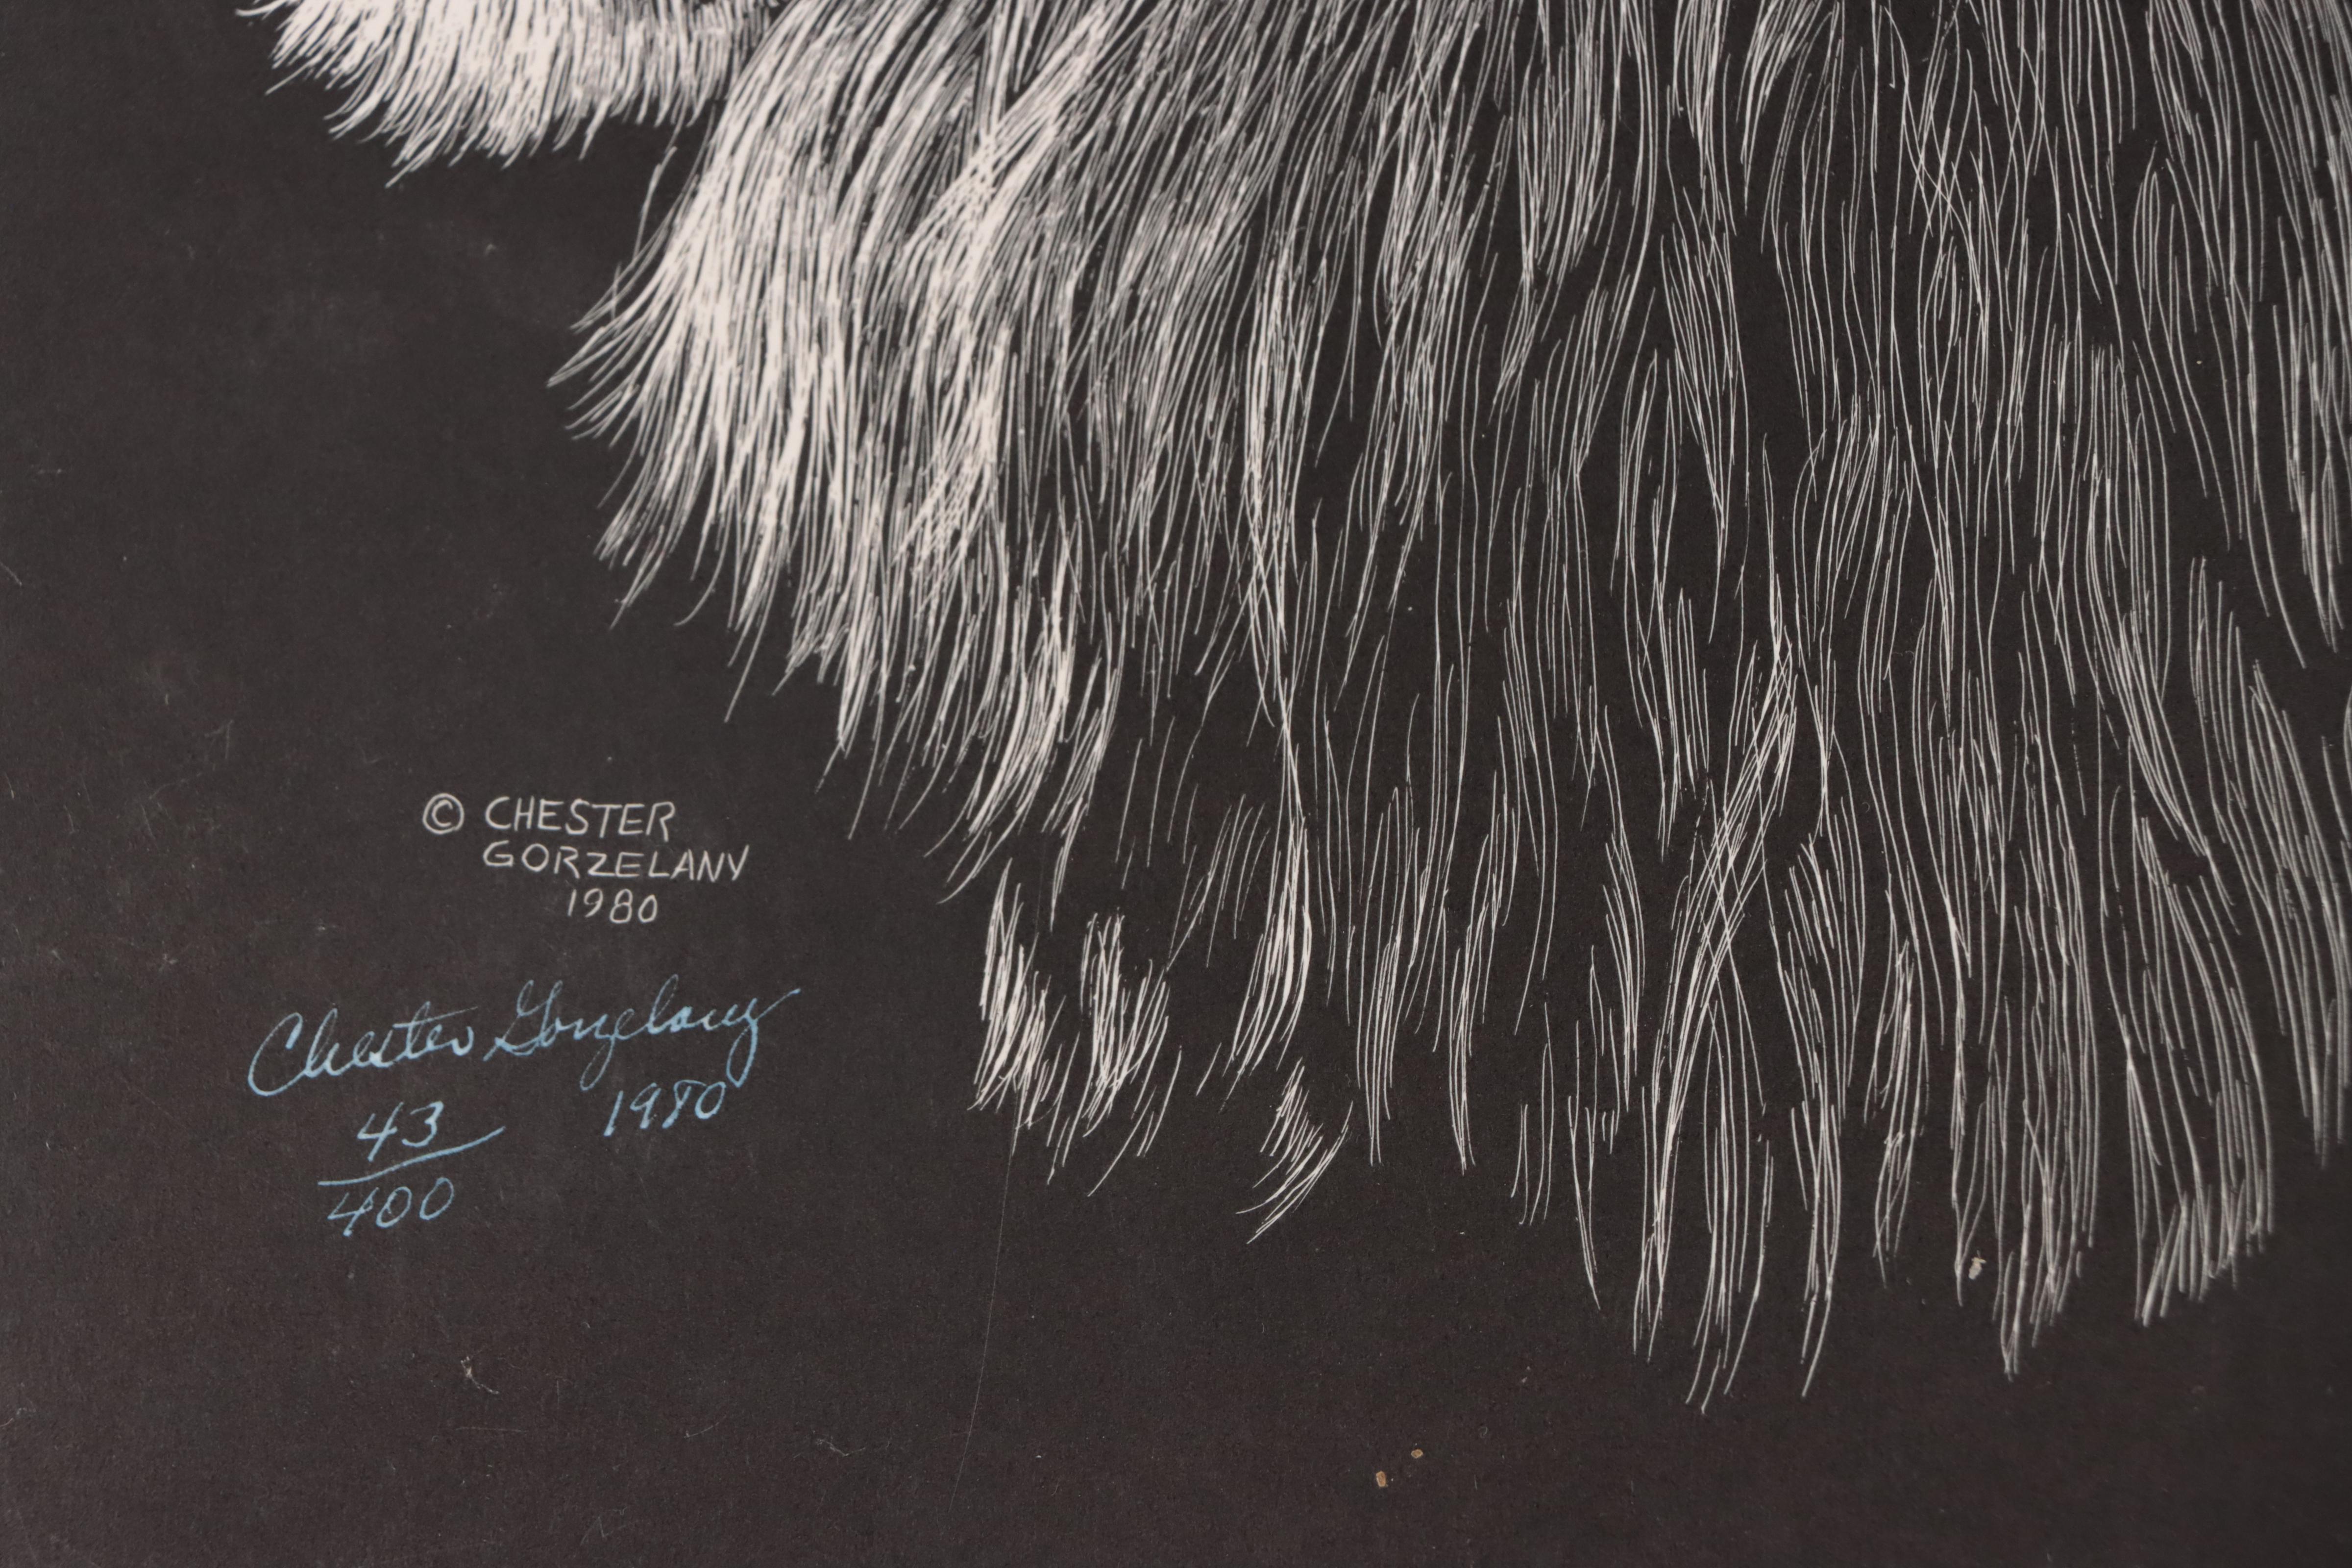 © CHESTER
GORZELANY
1980
Chester Gorzelany
43 1980
400